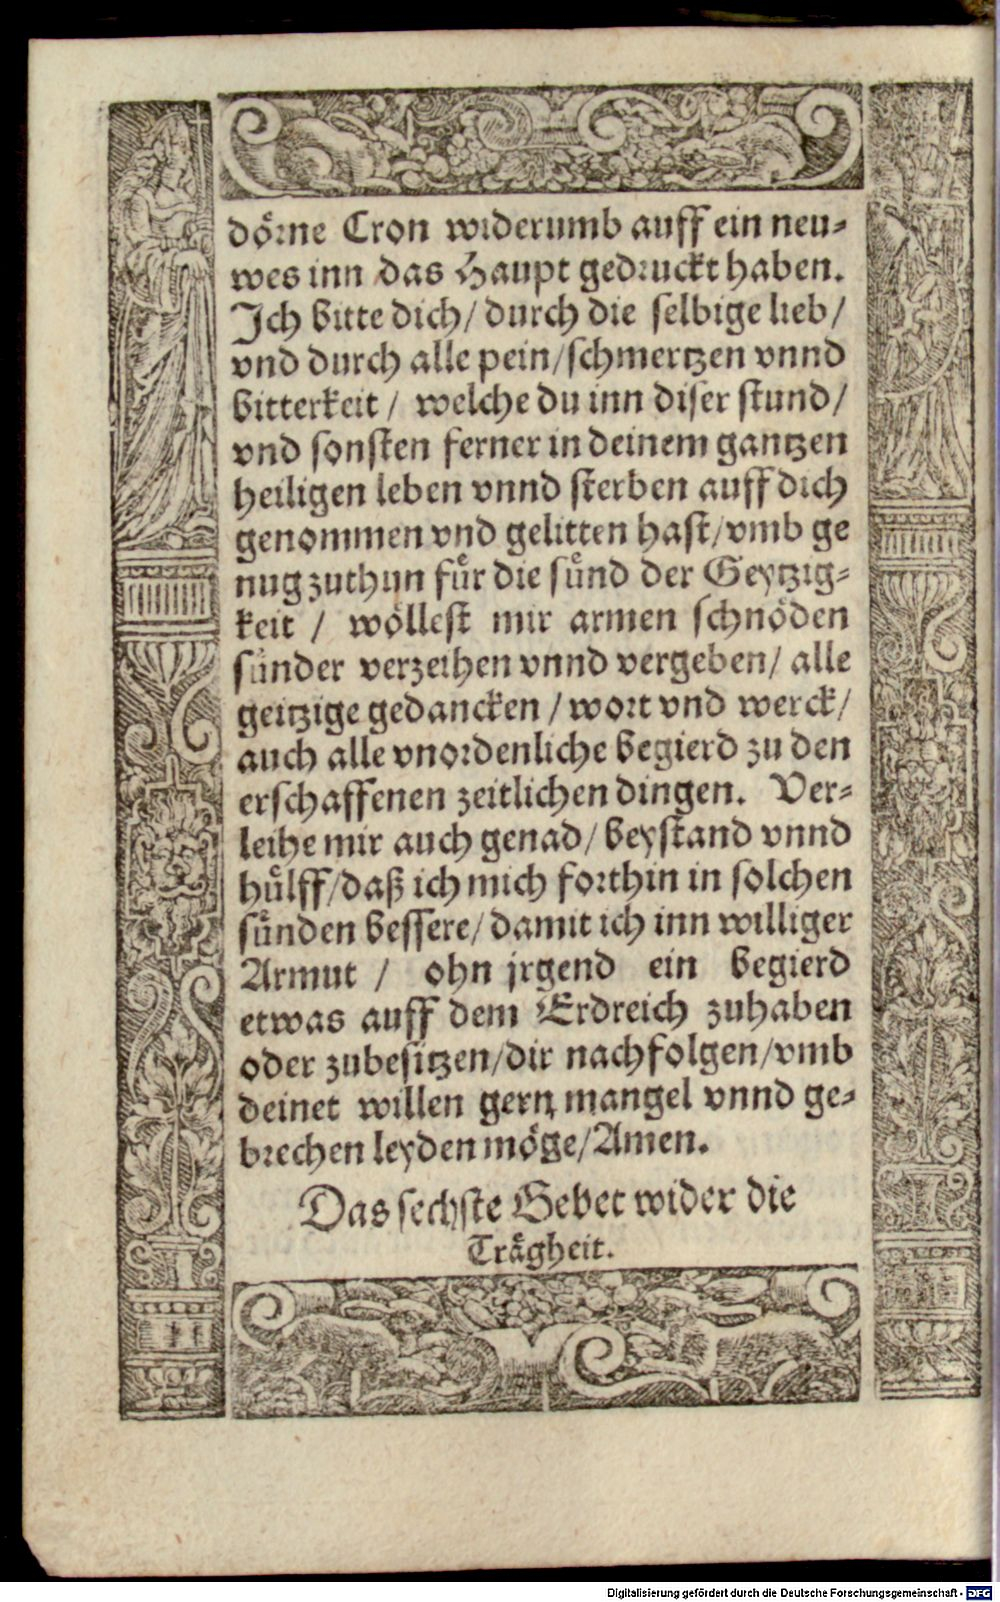 dörne Cron widerumb auff ein neu-
wes inn das Haupt gedruckt haben.
Ich bitte dich/ durch die selbige lieb/
vnd durch alle pein/schmertzen vnnd
bitterkeit / welche du inn diser stund/
vnd sonsten ferner in deinem gantzen
heiligen leben vnnd sterben auff dich
genommen vnd gelitten hast/vmb ge
nug zuthun für die sünd der Geytzig-
keit / wöllest mir armen schnöden
sünder verzeihen vnnd vergeben/ alle
geitzige gedancken / wort vnd werck/
auch alle vnordenliche begierd zu den
erschaffenen zeitlichen dingen. Ver-
leihe mir auch genad/ beystand vnnd
hülff/daß ich mich forthin in solchen
sünden bessere/ damit ich inn williger
Armut / ohn jrgend ein begierd
etwas auff dem Erdreich zuhaben
oder zubesitzen/dir nachfolgen/vmb
deinet willen gern mangel vnnd ge-
brechen leyden möge/Amen.
Das sechste Gebet wider die
Trägheit.
Digitalisierung gefördert durch die Deutsche Forschungsgemeinschaft - DFG